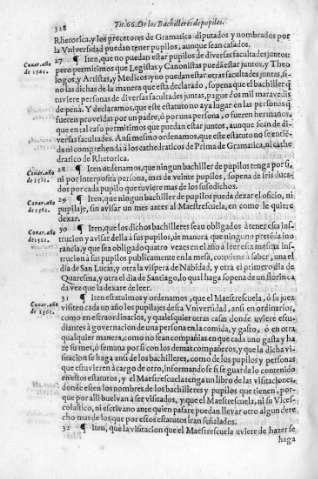 328 Tit. 66. De los Bachilleres de pupilos.
Rhetorica, y los preceptores de Gramatica diputados y nombrados por
la Vniuersidad puedan tener pupilos, aunque sean casados.
Couar. año de 1561.
27 ¶ Iten, que no puedan estar pupilos de diuersas facultades juntos:
pero permitimos que Legistas y Canonistas puedã estar juntos, y Theo
logos, y Artistas, y Medicos: y no puedan estar otras facultades juntas, si-
no las dichas de la manera que esta declarado, sopena que el bachiller q̃
tuuiere personas de diuersas facultades juntas, pague dos mil marauedis
de pena. Y declaramos, que este estatuto no aya lugar en las personas q̃
fueren proueidas por un padre, ò por una persona, o fueren hermanos,
que en tal caso permitimos que puedan estar juntos, aunque sean de di-
uersas facultades. Ansimesmo ordenamos, que este estatuto no se entiẽ-
da ni comprehenda à los cathedraticos de Prima de Gramatica, ni cathe
dratico de Rhetorica.
Couar. año de 1561.
28 ¶ Iten ordenamos, que ningun bachiller de pupilos tenga por si,
ni por interposita persona, mas de veinte pupilos, sopena de tres duca-
dos por cada pupilo que tuuiere mas de los susodichos.
Couar. año de 1561.
29 ¶ Iten, que ningun bachiller de pupilos pueda dexar el oficio, ni
pupilaje, sin auisar un mes antes al Maestrescuela, en como le quiere
dexar.
Couar. año de 1561.
30 ¶ Iten, que los dichos bachilleres sean obligados à tener esta ins-
trucion y auisar della à sus pupilos, de manera que ninguno pretẽda ino
rancia, y que sea obligado quatro vezes en el año à leer esta mesma ins-
trucion à sus pupilos publicamente en la mesa, conuiene à saber, una el
dia de San Lucas, y otra la vispera de Nabidad, y otra el primero dia de
Quaresma, y otra el dia de Santiago, lo qual haga sopena de un florin ca
da vez que la dexare de leer.
Couar. año de 1561.
31 ¶ Iten estatuimos y ordenamos, que el Maestrescuela, ò su juez
visiten cada un año los pupilajes desta Vniuersidad, ansi en ordinarios,
como en estraordinarios, y qualesquier otras casas donde uuiere estu-
diantes à gouernacion de una persona en la comida, y gasto, ò en otra
qualquier manera, como no sean compañias en que cada uno gasta y ha
ze su mes, ò semana por si con los demas compañeros, y que la dicha vi-
sitacion se haga ansi de los bachilleres, como de los pupilos y personas
que estuuieren à cargo de otro, informandose si se guarda lo contenido
en estos estatutos, y el Maestrescuela tenga un libro de las visitaciones,
donde esten los nombres de los bachilleres y pupilos que tienen, por-
que por alli bueluan à ser visitados, y que el Maestrescuela, ni su Vices-
colastico, ni escriuano ante quien passare puedan lleuar otro algun dere
cho mas de los que por esos estatutos seràn señalados.
32 ¶ Iten, que la visitacion que el Maestrescuela uuiere de hazer se
haga